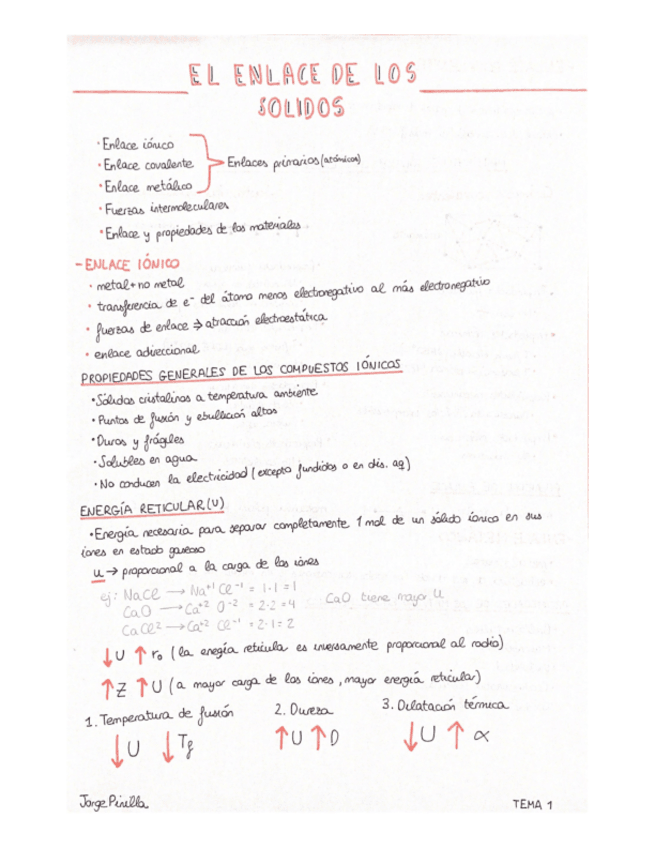 EL ENLACE DE LOS
SOLIDOS
· Enlace iónico
· Enlace covalente
· Enlace metálico
Enlaces primarios (atómicos)
· Fuerzas intermoleculares
· Enlace y propiedades de los materiales
- ENLACE IÓNICO
· metal + no metal
· transferencia de e⁻ del átomo menos electronegativo al más electronegativo
· fuerzas de enlace ⇒ atracción electroestática
· enlace adireccional
PROPIEDADES GENERALES DE LOS COMPUESTOS IÓNICOS
· Sólidos cristalinos a temperatura ambiente
· Puntos de fusión y ebullición altos
· Duros y frágiles
· Solubles en agua
· No conducen la electricidad (excepto fundidos o en dis. aq)
ENERGÍA RETICULAR (U)
· Energía necesaria para separar completamente 1 mol de un sólido iónico en sus
iones en estado gaseoso
U → proporcional a la carga de los iones
ej: NaCl → Na⁺¹ Cl⁻¹ = 1·1 = 1
CaO → Ca⁺² O⁻² = 2·2 = 4
CaO tiene mayor U
CaCl² → Ca⁺² Cl⁻¹ = 2·1 = 2
↓U ↑r₀ (la energía reticula es inversamente proporcional al radio)
↑Z ↑U (a mayor carga de los iones, mayor energía reticular)
1. Temperatura de fusión
2. Dureza
3. Dilatación térmica
↓U ↓Tf
↑U ↑D
↓U ↑α
Jorge Pinilla
TEMA 1